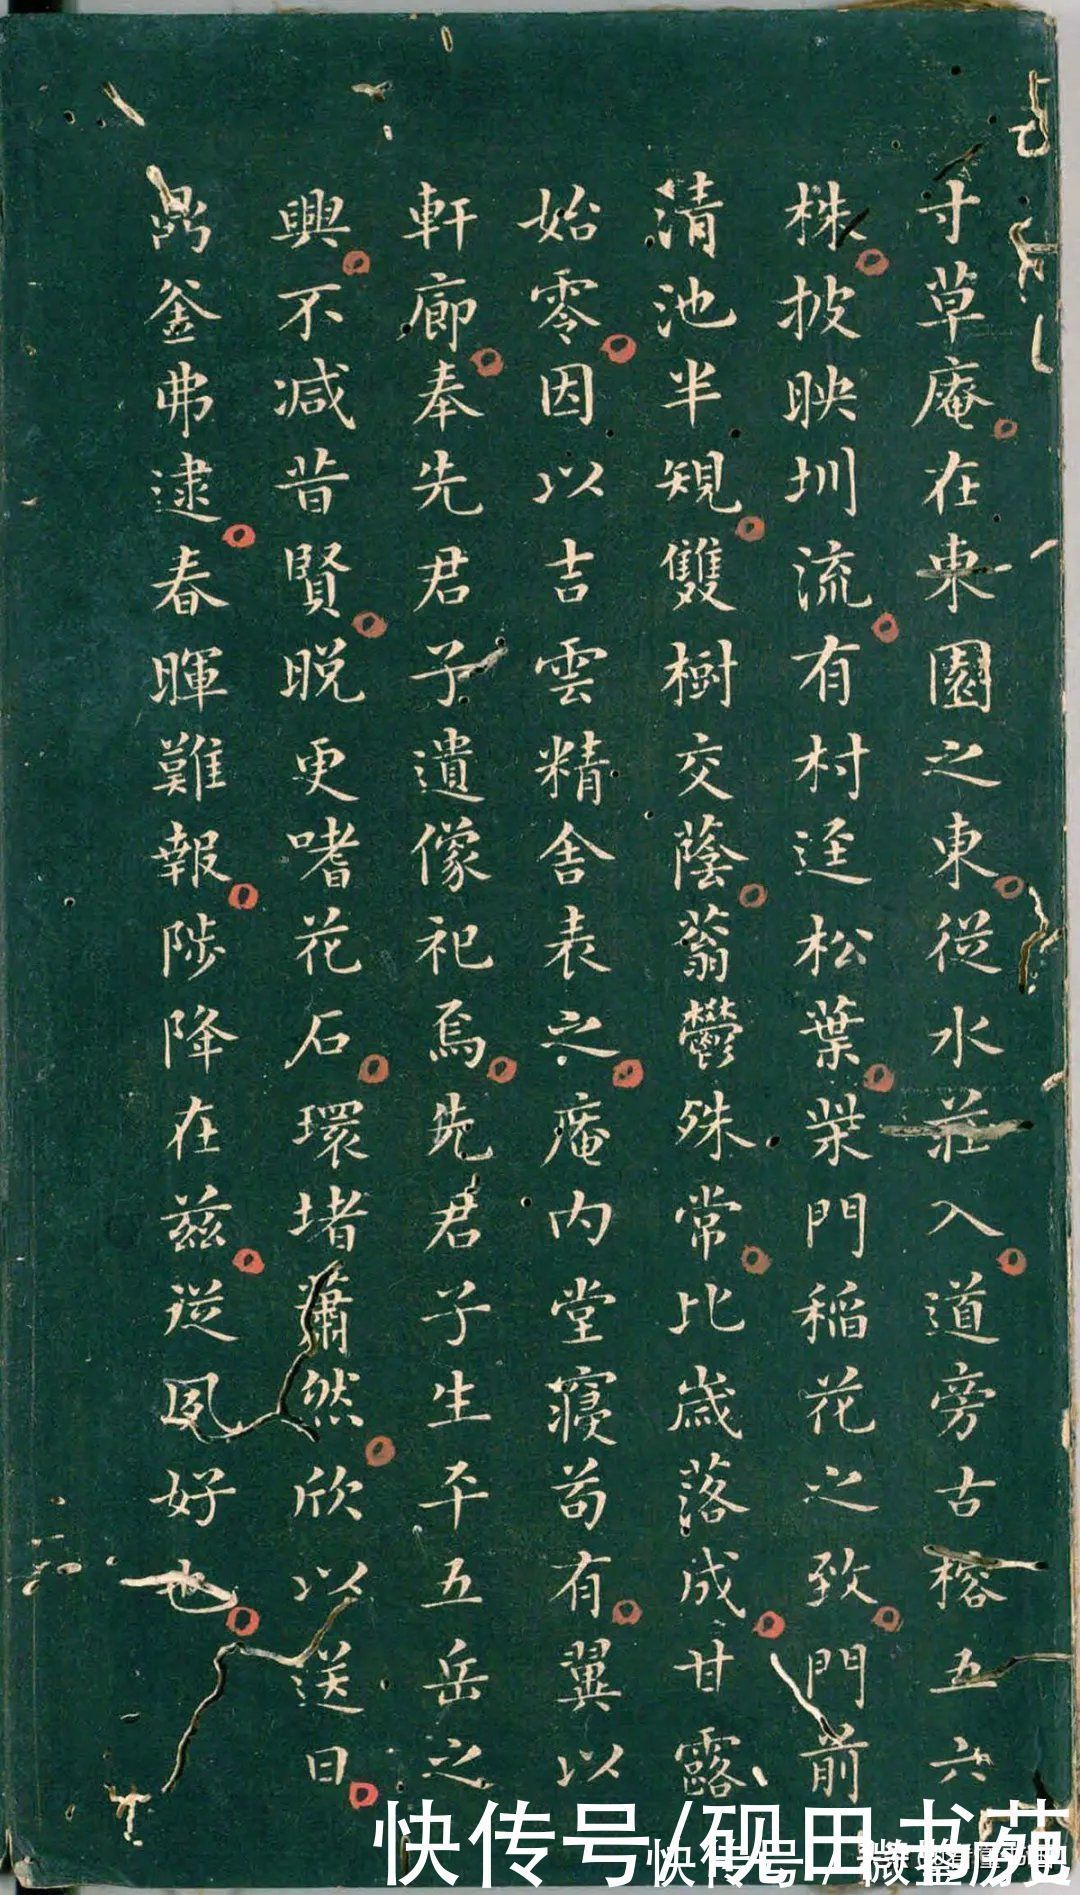 寸草庵在東園之東從水莊入道旁古榕五六
株披映圳流有村逕松葉柴門稲花之致門前
清池半規雙樹交蔭蓊鬱殊常比歳落成甘露
始零因以吉雲精舎表之庵内堂寝苟有翼以
軒廊奉先君子遺像祀焉先君子生平五岳之
興不减昔賢晩更嗜花石環堵蕭然欣以送日
鼎釜弗逮春暉難報陟降在兹從夙好也
快传号/砚田书苑
快传号 / 微鉴历史